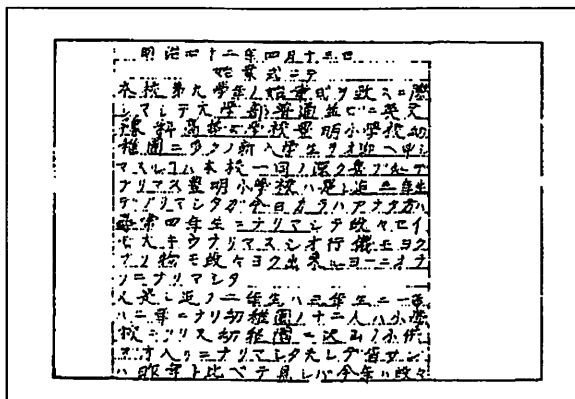 明治四十二年四月十三日
始業式ニテ
本校第九学年ノ始業式ヲ致スニ際
シマシテ大学部普通並ビニ英文
豫科高等女学校豊明小学校幼
稚園ニ多クノ新入学生ヲオ迎ヘ申シ
マスレコハ本校一同ノ深ク喜ブ処デ
アリマス豊明小学校ハ是レ迄三年生
デアリマシタガ今日カラハアナタ方ハ
尋常四年生ニナリマシテ段々セイ
モ大キウナリマスシオ行儀モヨク
ナリ物モ段々ヨク出来ルヨーニオナ
リニナリマシタ
又是レ迄ノ二年生ハ三年生ニ一年
ハ二年ニナリ幼稚園ノ十二人ハ小学
校ニ入リ又幼稚園ニ沢山ノ小供
ガオ入リニナリマシタ夫レデ皆サン
ハ昨年ト比ベテ見レバ今年ハ段々